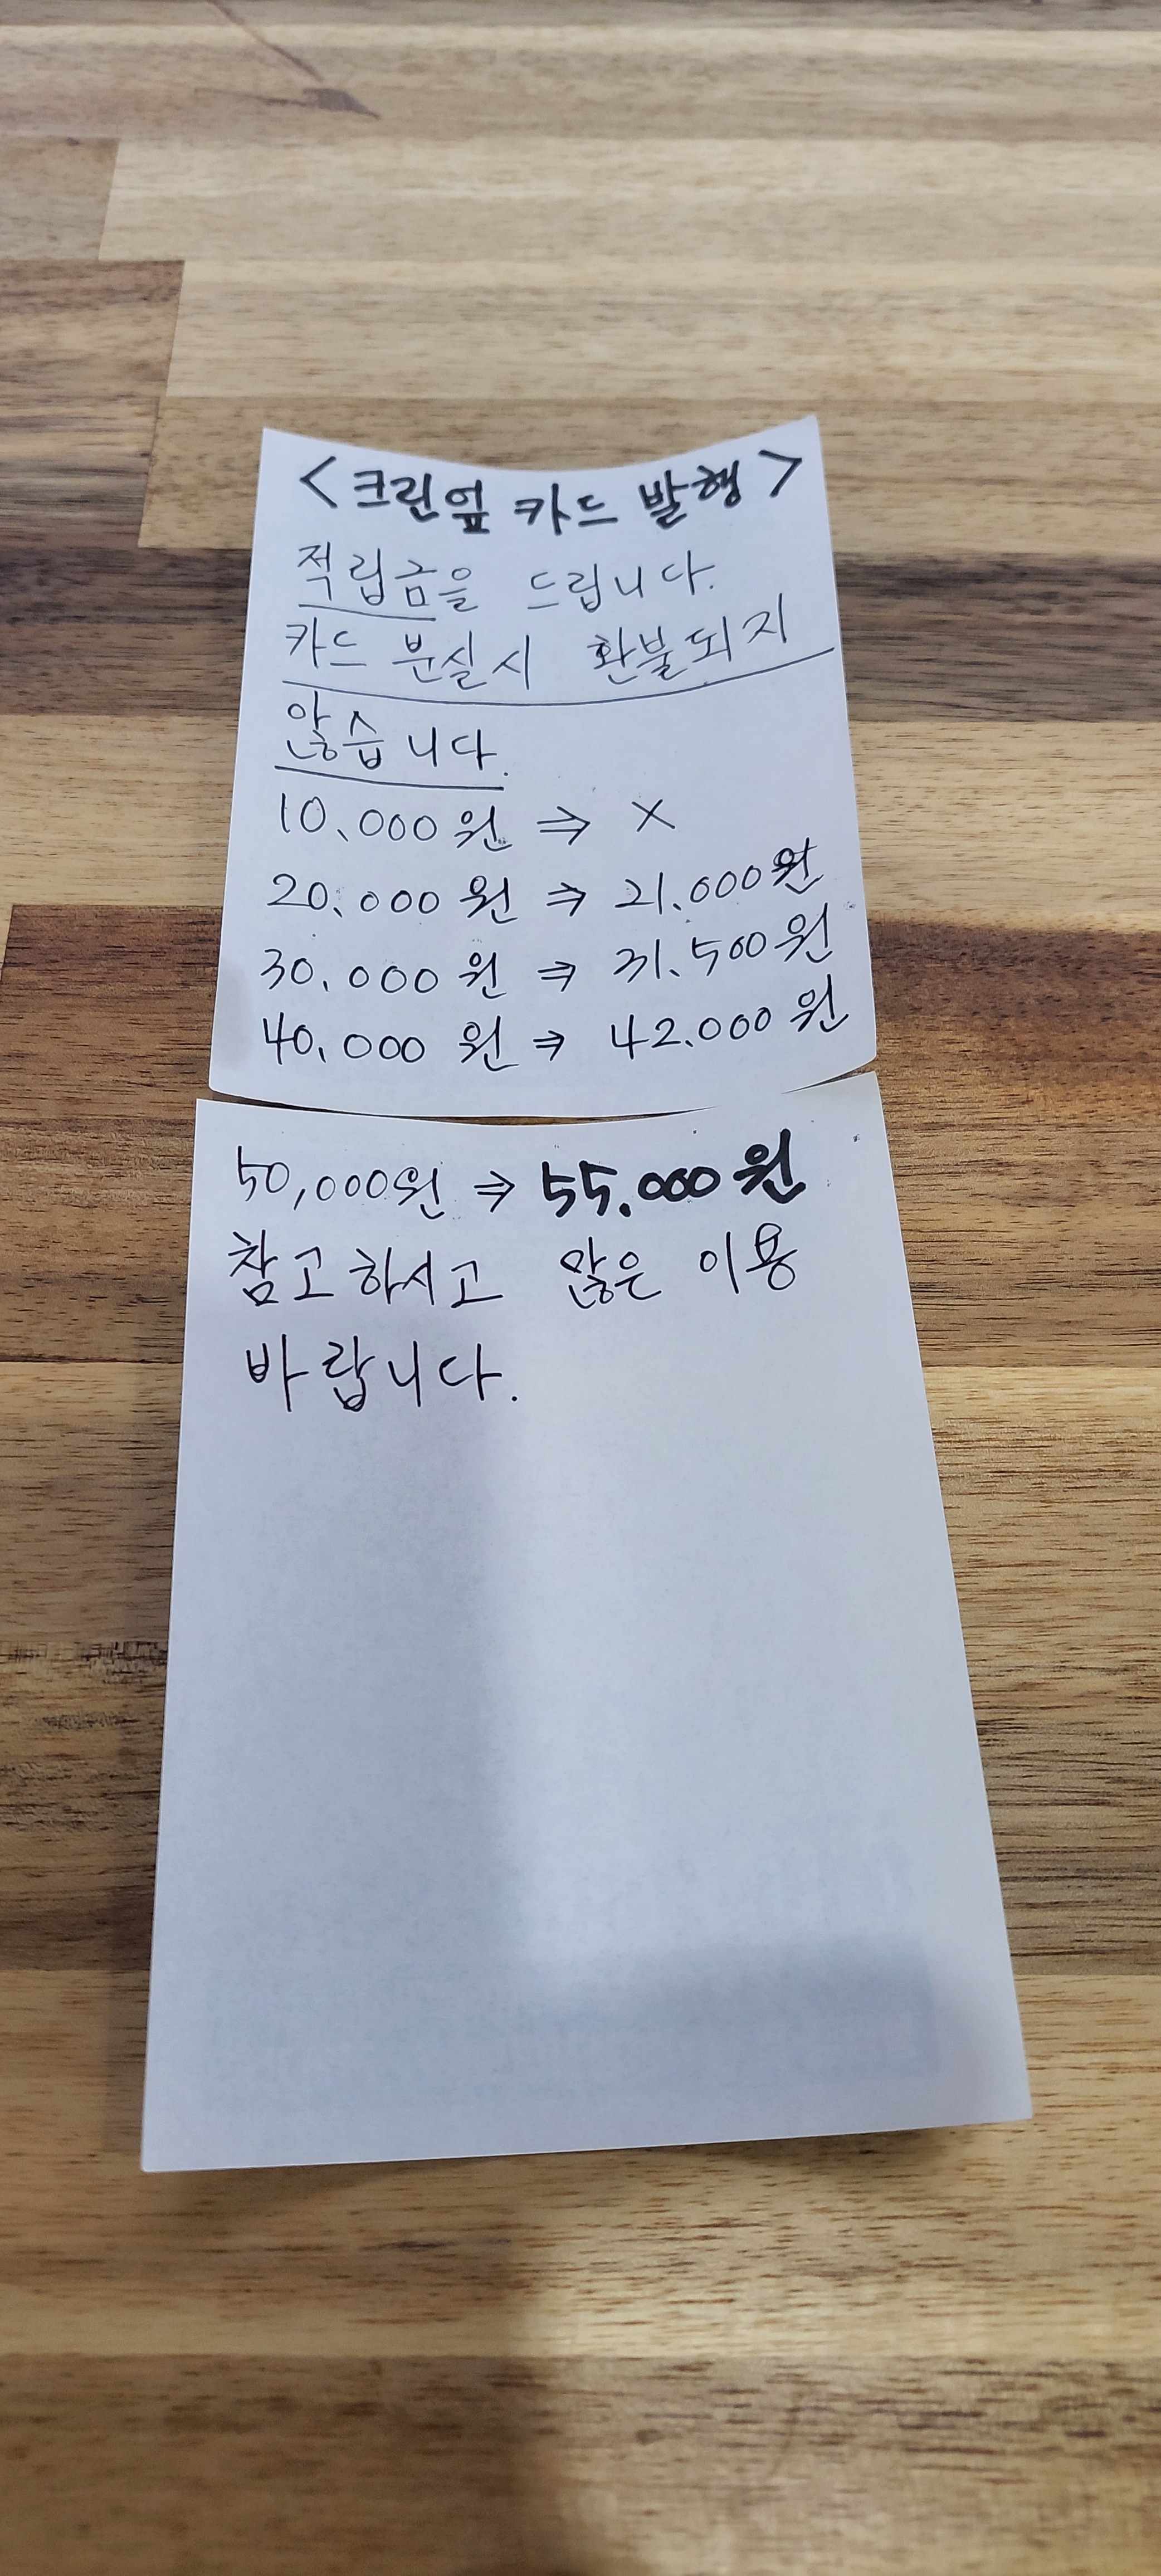 <크린엎 카드 발행>
적립금을 드립니다.
카드 분실시 환불되지
않습니다.
10.000원 ⇒ ×
20.000원 ⇒ 21.000원
30.000원 ⇒ 31.500원
40.000원 ⇒ 42.000원
50,000원 ⇒ 55.000원
참고하시고 많은 이용
바랍니다.